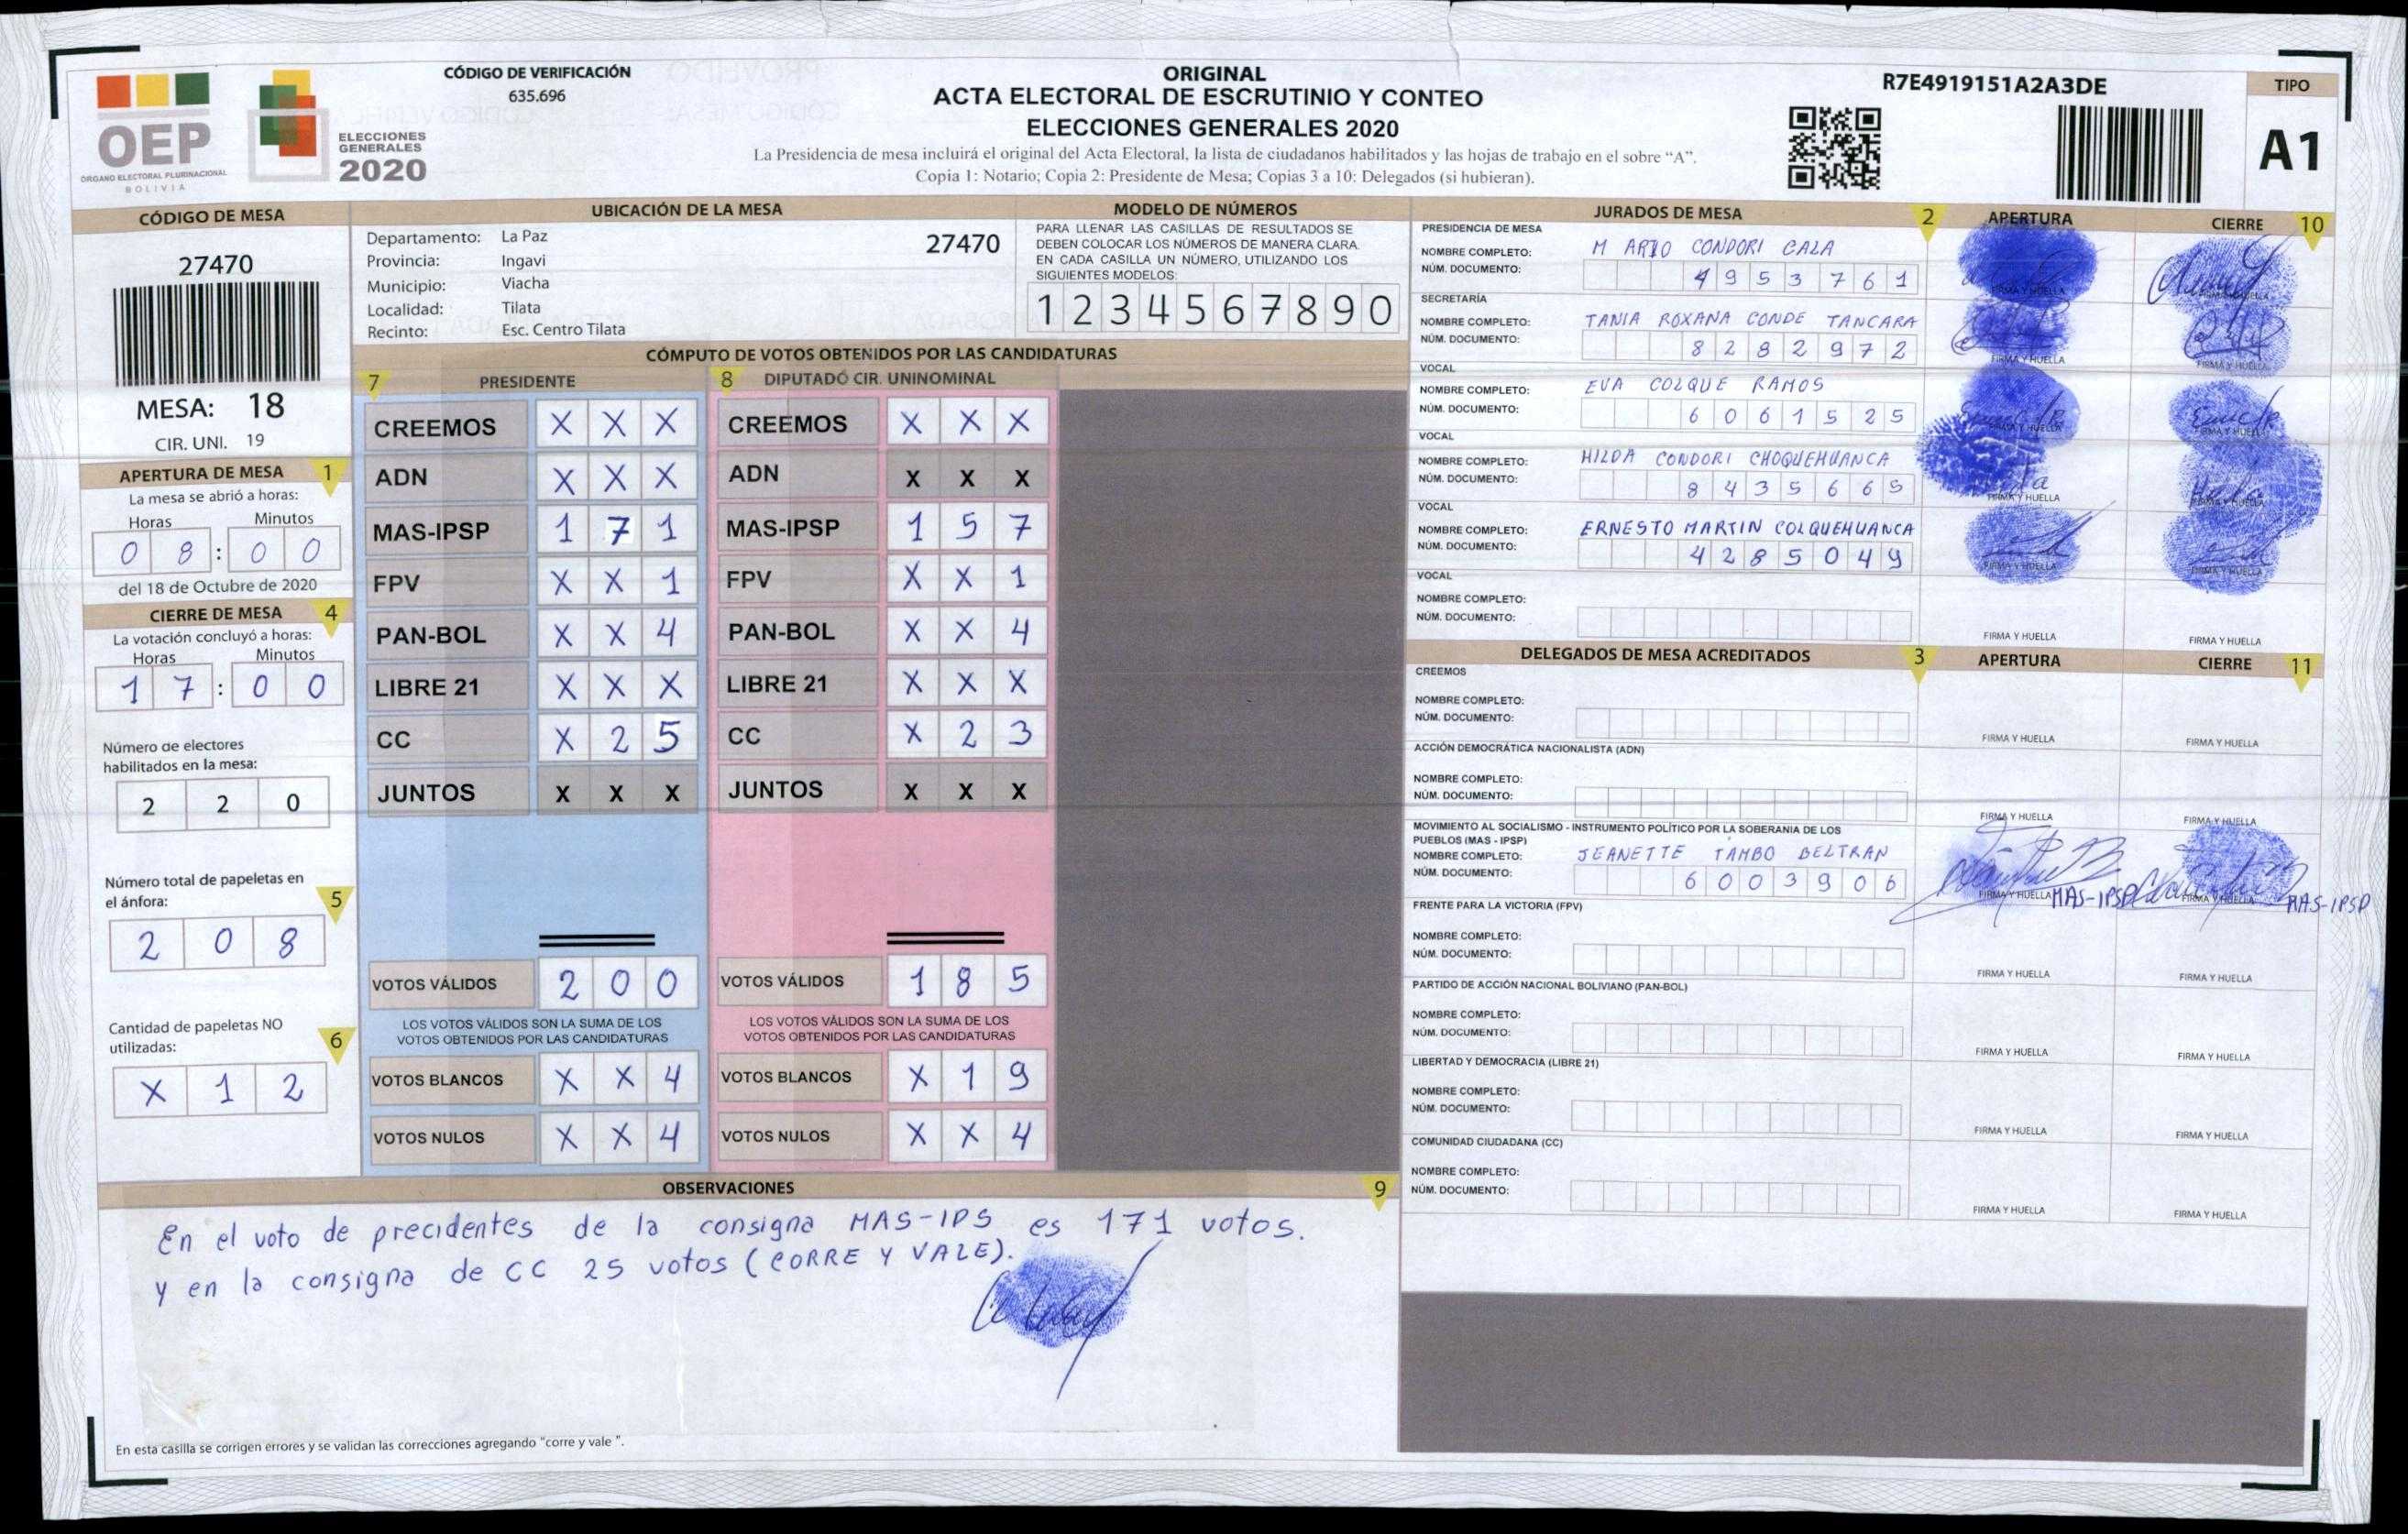 OEP
ÓRGANO ELECTORAL PLURINACIONAL
BOLIVIA
ELECCIONES
GENERALES
2020
CÓDIGO DE VERIFICACIÓN
635.696
ORIGINAL
ACTA ELECTORAL DE ESCRUTINIO Y CONTEO
ELECCIONES GENERALES 2020
La Presidencia de mesa incluirá el original del Acta Electoral, la lista de ciudadanos habilitados y las hojas de trabajo en el sobre “A”.
Copia 1: Notario; Copia 2: Presidente de Mesa; Copias 3 a 10: Delegados (si hubieran).
R7E4919151A2A3DE
TIPO
A1
CÓDIGO DE MESA
27470
MESA: 18
CIR. UNI. 19
APERTURA DE MESA 1
La mesa se abrió a horas:
Horas Minutos
0 8 : 0 0
del 18 de Octubre de 2020
CIERRE DE MESA 4
La votación concluyó a horas:
Horas Minutos
1 7 : 0 0
Número de electores
habilitados en la mesa:
2 2 0
Número total de papeletas en
el ánfora: 5
2 0 8
Cantidad de papeletas NO
utilizadas: 6
X 1 2
UBICACIÓN DE LA MESA
Departamento: La Paz 27470
Provincia: Ingavi
Municipio: Viacha
Localidad: Tilata
Recinto: Esc. Centro Tilata
MODELO DE NÚMEROS
PARA LLENAR LAS CASILLAS DE RESULTADOS SE
DEBEN COLOCAR LOS NÚMEROS DE MANERA CLARA.
EN CADA CASILLA UN NÚMERO, UTILIZANDO LOS
SIGUIENTES MODELOS:
1 2 3 4 5 6 7 8 9 0
CÓMPUTO DE VOTOS OBTENIDOS POR LAS CANDIDATURAS
7 PRESIDENTE
CREEMOS X X X
ADN X X X
MAS-IPSP 1 7 1
FPV X X 1
PAN-BOL X X 4
LIBRE 21 X X X
CC X 2 5
JUNTOS X X X
VOTOS VÁLIDOS 2 0 0
LOS VOTOS VÁLIDOS SON LA SUMA DE LOS
VOTOS OBTENIDOS POR LAS CANDIDATURAS
VOTOS BLANCOS X X 4
VOTOS NULOS X X 4
8 DIPUTADO CIR. UNINOMINAL
CREEMOS X X X
ADN X X X
MAS-IPSP 1 5 7
FPV X X 1
PAN-BOL X X 4
LIBRE 21 X X X
CC X 2 3
JUNTOS X X X
VOTOS VÁLIDOS 1 8 5
LOS VOTOS VÁLIDOS SON LA SUMA DE LOS
VOTOS OBTENIDOS POR LAS CANDIDATURAS
VOTOS BLANCOS X 1 9
VOTOS NULOS X X 4
OBSERVACIONES 9
En el voto de precidentes de la consigna MAS-IPS es 171 votos.
y en la consigna de CC 25 votos (CORRE Y VALE).
En esta casilla se corrigen errores y se validan las correcciones agregando "corre y vale ".
JURADOS DE MESA 2 APERTURA CIERRE 10
PRESIDENCIA DE MESA
NOMBRE COMPLETO: MARIO CONDORI CALA
NÚM. DOCUMENTO: 4 9 5 3 7 6 1
FIRMA Y HUELLA FIRMA Y HUELLA
SECRETARÍA
NOMBRE COMPLETO: TANIA ROXANA CONDE TANCARA
NÚM. DOCUMENTO: 8 2 8 2 9 7 2
FIRMA Y HUELLA FIRMA Y HUELLA
VOCAL
NOMBRE COMPLETO: EVA COLQUE RAMOS
NÚM. DOCUMENTO: 6 0 6 1 5 2 5
FIRMA Y HUELLA FIRMA Y HUELLA
VOCAL
NOMBRE COMPLETO: HILDA CONDORI CHOQUEHUANCA
NÚM. DOCUMENTO: 8 4 3 5 6 6 5
FIRMA Y HUELLA FIRMA Y HUELLA
VOCAL
NOMBRE COMPLETO: ERNESTO MARTIN COLQUEHUANCA
NÚM. DOCUMENTO: 4 2 8 5 0 4 9
FIRMA Y HUELLA FIRMA Y HUELLA
VOCAL
NOMBRE COMPLETO:
NÚM. DOCUMENTO:
FIRMA Y HUELLA FIRMA Y HUELLA
DELEGADOS DE MESA ACREDITADOS 3 APERTURA CIERRE 11
CREEMOS
NOMBRE COMPLETO:
NÚM. DOCUMENTO:
FIRMA Y HUELLA FIRMA Y HUELLA
ACCIÓN DEMOCRÁTICA NACIONALISTA (ADN)
NOMBRE COMPLETO:
NÚM. DOCUMENTO:
FIRMA Y HUELLA FIRMA Y HUELLA
MOVIMIENTO AL SOCIALISMO - INSTRUMENTO POLÍTICO POR LA SOBERANIA DE LOS
PUEBLOS (MAS - IPSP)
NOMBRE COMPLETO: JEANETTE TAMBO BELTRAN
NÚM. DOCUMENTO: 6 0 0 3 9 0 6
FIRMA Y HUELLA MAS-IPSP FIRMA Y HUELLA MAS-IPSP
FRENTE PARA LA VICTORIA (FPV)
NOMBRE COMPLETO:
NÚM. DOCUMENTO:
FIRMA Y HUELLA FIRMA Y HUELLA
PARTIDO DE ACCIÓN NACIONAL BOLIVIANO (PAN-BOL)
NOMBRE COMPLETO:
NÚM. DOCUMENTO:
FIRMA Y HUELLA FIRMA Y HUELLA
LIBERTAD Y DEMOCRACIA (LIBRE 21)
NOMBRE COMPLETO:
NÚM. DOCUMENTO:
FIRMA Y HUELLA FIRMA Y HUELLA
COMUNIDAD CIUDADANA (CC)
NOMBRE COMPLETO:
NÚM. DOCUMENTO:
FIRMA Y HUELLA FIRMA Y HUELLA